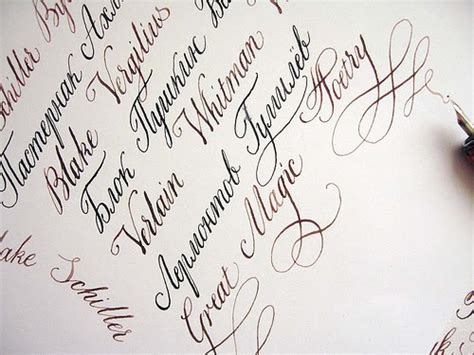 Schiller By
Пастернак Ахм
Vergilius
Blake
Блок Пушкин
Whitman
Verlain
Лермонтов Гумилёв
Great Magic Poetry
Schiller